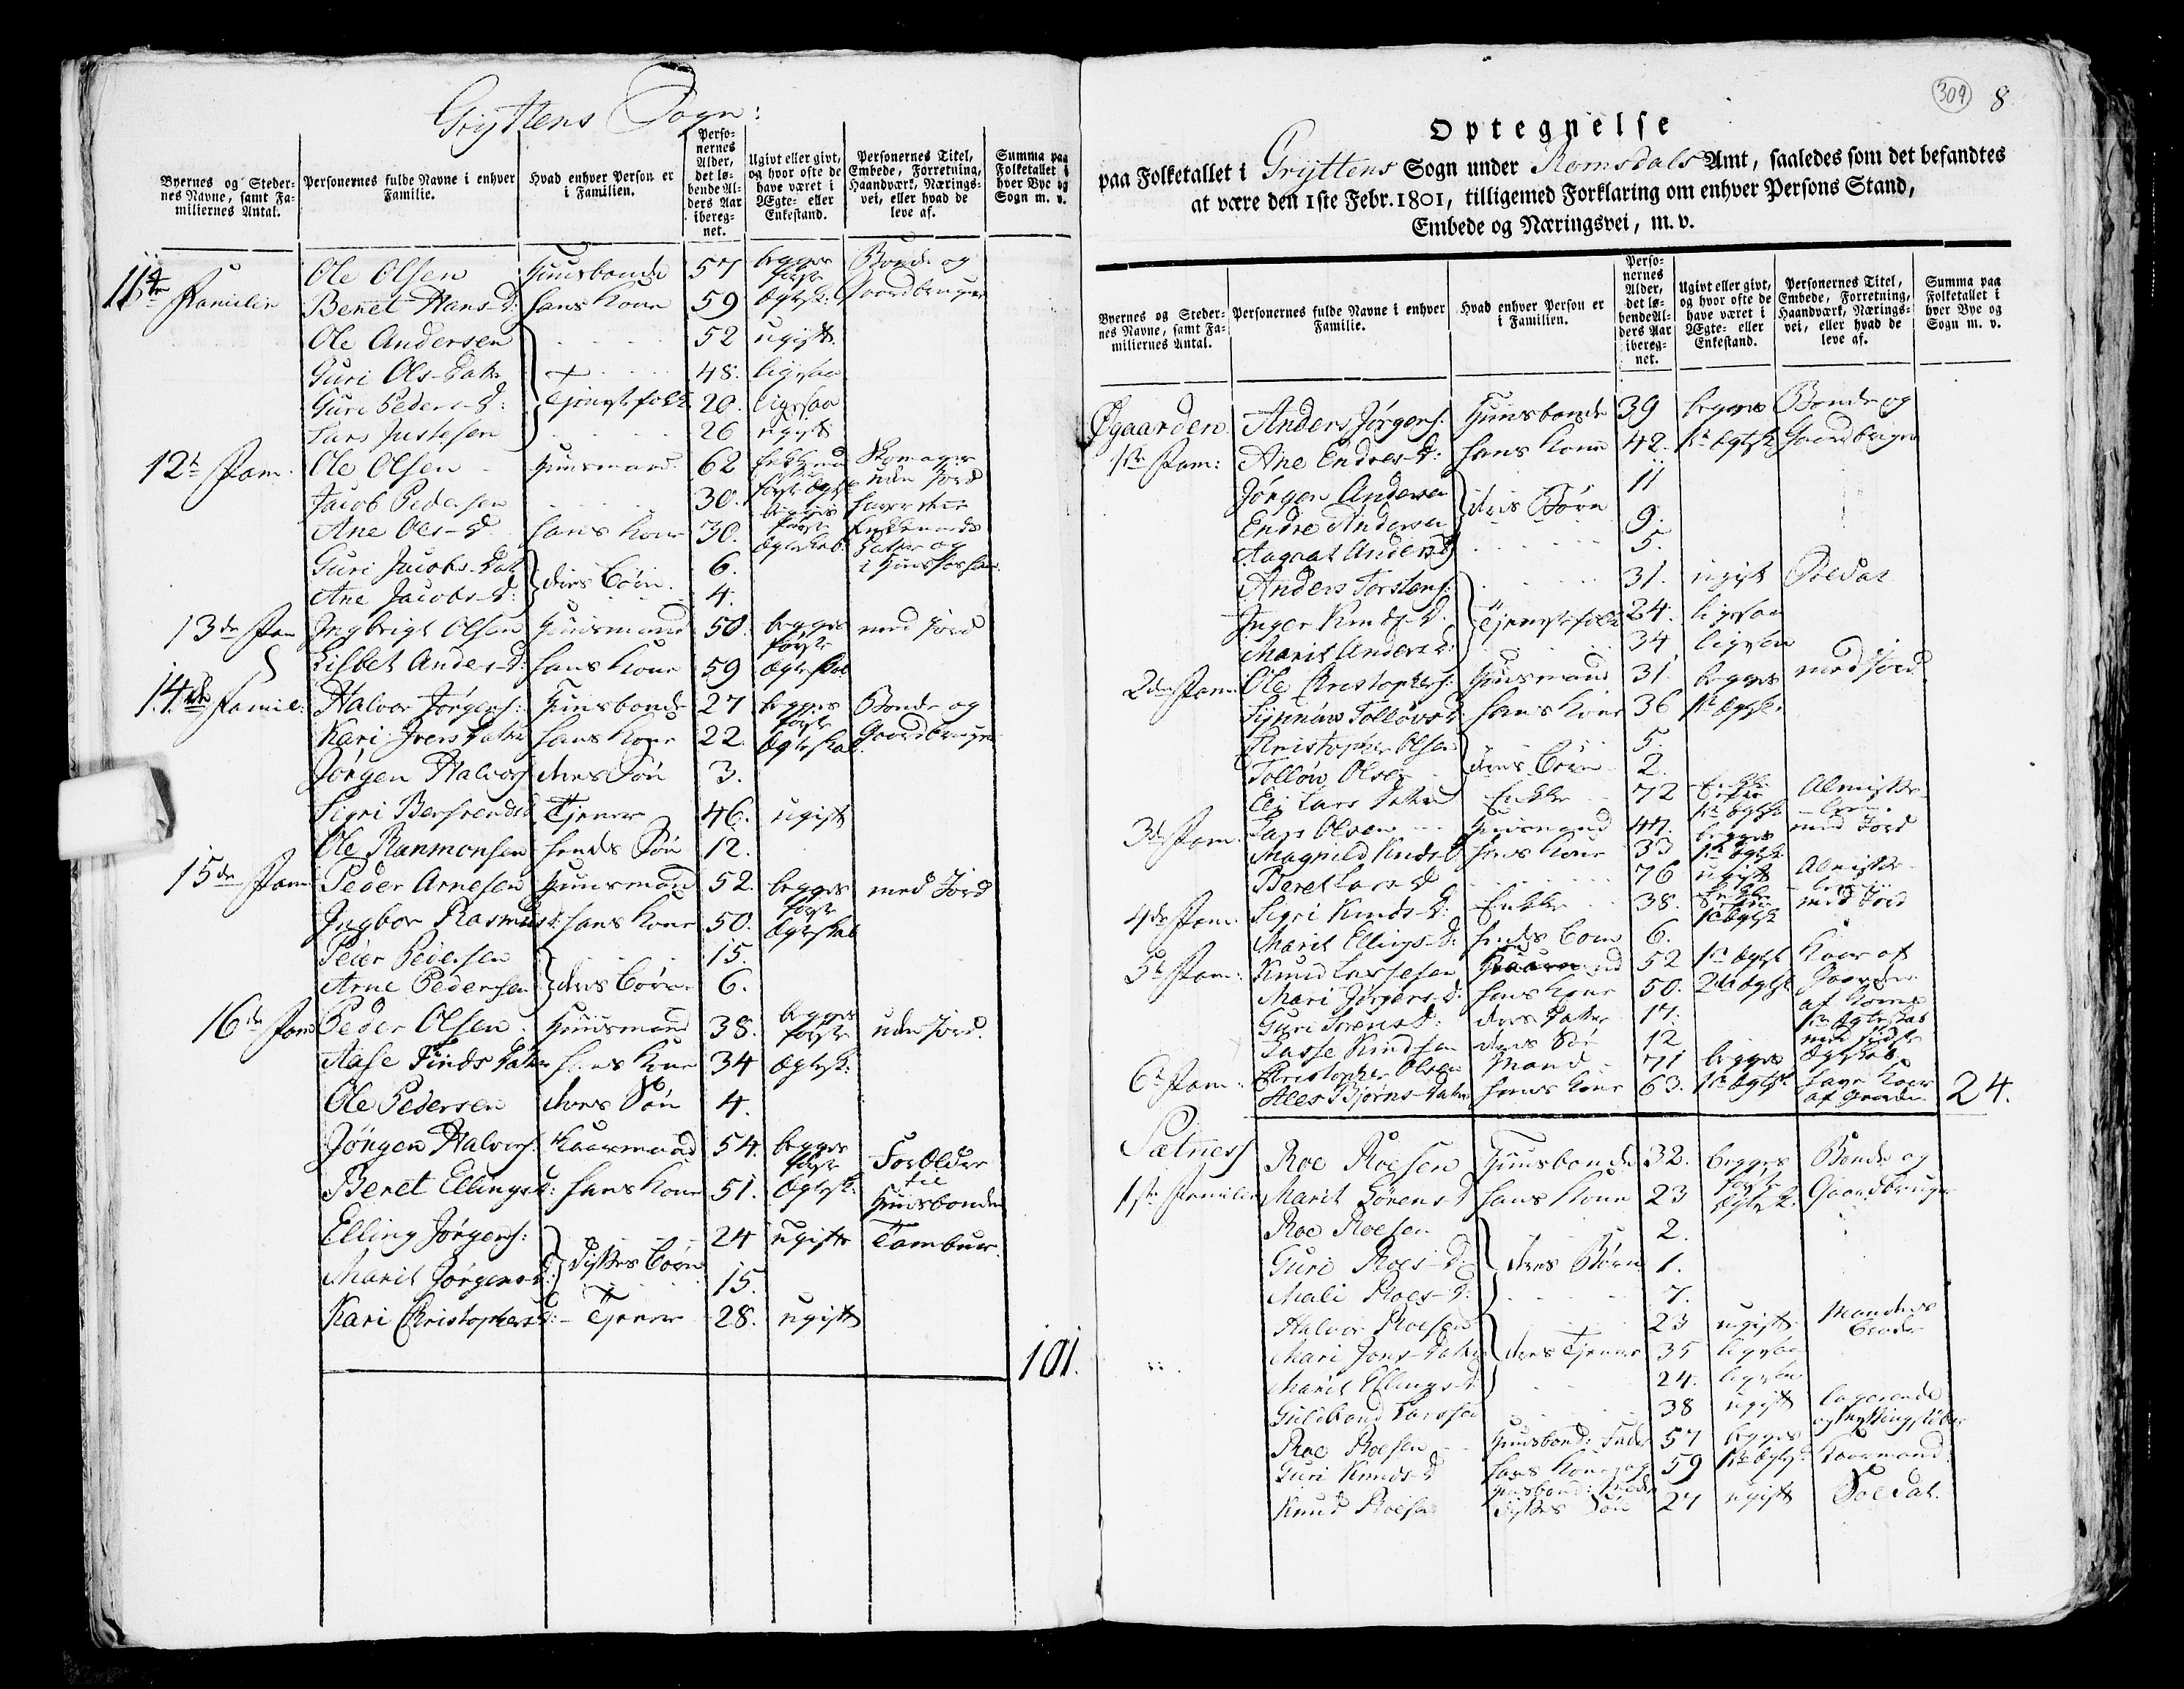 Gryttens Sogn:
Byernes og Steder-
nes Navne, samt Fa-
miliernes Antal.
Personernes fulde Navne i enhver
Familie.
Hvad enhver Person er
i Familien.
Perso-
nernes
Alder,
det lø-
bende Al-
ders Aar
ibereg-
net.
Ugivt eller givt,
og hvor ofte de
have været i
Ægte- eller
Enkestand.
Personernes Titel,
Embede, Forretning,
Haandværk, Nærings-
vei, eller hvad de
leve af.
Summa paa
Folketallet i
hver Bye og
Sogn m. v.
11te Familie Ole Olsen Huusbonde 57 begges første Bonde og
Beret Hans-D: hans Kone 59 Ægtesk: Gaardbruger
Ole Andersen 52 ugift
Guri Ols-Datter + 48. ligesaa
Guri Peders-D: Tjenestefolk 20. ligesaa
Lars Justesen 26 ugift
12te Fam. Ole Olsen Huusmand 62 Skomager uden Jord
Jacob Pedersen 30.
Ane Ols-D hans Kone 30. Ægteskab
Guri Jacobs-Dat 6.
Ane Jacobs-D: deres Børn 4.
13de Fam Ingbrigt Olsen Huusmand 50. begges første med Jord
Lisbet Anders-D: hans Kone 59 Ægteskab
14de Famil: Halvor Jørgens: Huusbonde 27 begges første Bonde og
Kari Ivers Datter hans Kone 22. Ægteskab Gaardbruger
Jørgen Halvors deres Søn 3.
Sigri Tjener 46. ugift
Ole hendes Søn 12.
15de Fam Peder Arnesen Huusmand 52. begges første med Jord
Ingbor Rasmusd: hans Kone 50. Ægteskab
Peder Pedersen 15.
Arne Pedersen deres Børn 6.
16de Fam Peder Olsen Huusmand 38. begges første uden Jord.
Aase Finds Datter hans Kone 34 Ægtesk:
Ole Pedersen deres Søn 4.
Jørgen Halvors: Kaarmand 54. begges første Forældre
Beret Ellings D: hans Kone 51. Ægtesk: til Huusbonden
Elling Jørgens: 24 ugift Tambur.
Marit Jørgens-D: disses Børn 15.
Kari Christophers D: Tjener 28. ugift
101.
309 8
Optegnelse
paa Folketallet i Gryttens Sogn under Romsdals Amt, saaledes som det befandtes
at være den 1ste Febr. 1801, tilligemed Forklaring om enhver Persons Stand,
Embede og Næringsvei, m. v.
Byernes og Steder-
nes Navne, samt Fa-
miliernes Antal.
Personernes fulde Navne i enhver
Familie.
Hvad enhver Person er
i Familien.
Perso-
nernes
Alder,
det lø-
bende Al-
ders Aar
ibereg-
net.
Ugivt eller givt,
og hvor ofte de
have været i
Ægte- eller
Enkestand.
Personernes Titel,
Embede, Forretning,
Haandværk, Nærings-
vei, eller hvad de
leve af.
Summa paa
Folketallet i
hver Bye og
Sogn m. v.
Øgaarden Anders Jørgens: Huusbonde 39 begges Bonde og
1ste Fam: Ane Endres-D: hans Kone 42. 1te Ægtsk Gaardbruger
Jørgen Andersen 11
Endre Andersen deres Børn 9.
Aagaat Anders D 5.
Anders Torstens: 31. ugift Soldat
Inger Knuds-D. Tjenestefolk 24. ligesaa
Marit Anders D: 34 ligesaa
2den Fam. Ole Christophers: Huusmand 31. begges med Jord
Synnøw Folløvs-D hans Kone 36 1te Ægtsk.
Christopher Olsen 5.
Folløv Olsen deres Børn 2.
Eli Lars Datter Enke 72 1te Ægtsk
3de Fam. Lars Olsen Huusmand 47. begges med Jord
Magnild Knuds D hans Kone 33 1te Ægtsk
Beret Lars-D 76 ugift
4de Fam. Sigri Knuds-D: Enke 38. 1te Ægtsk med Jord
Marit Ellings-D: hendes Barn 6.
5te Fam: Knud Lassesen 52 1te Ægtsk Kaar af
Mari Jørgens-D. hans Kone 50. 2det Ægtsk Gaarden
Guri Sørens D: deres Datter 17.
Lasse Knudsen deres Søn 12
6te Fam: Christopher Olsen Mand 71 begges
Bjørns-Datter hans Kone 63. 1te Ægtsk have Kaar af Gaarden 24.
Sætness Roe Roesen Huusbonde 32. begges første Bonde og
1ste Familie Marit Sørens-D hans Kone 23 Ægtesk. Gaardbruger
Roe Roesen 2.
Guri Roes-D deres Børn 1.
Mali Roes-D: 7.
Halvor Roesen 23 ugift Mandens Broder
Mari Jons-Datter deres Tjener 35 ligesaa
Marit Ellings-D 24. ligesaa
Guldbrand Larssen 38 ugift
Roe Roesen Huusbond: Fader 57 begges
Guri Knuds-D hans Kone og 59 1te Ægtsk Kaarmand
Knud Roesen disses Søn 27 ugift Soldat.